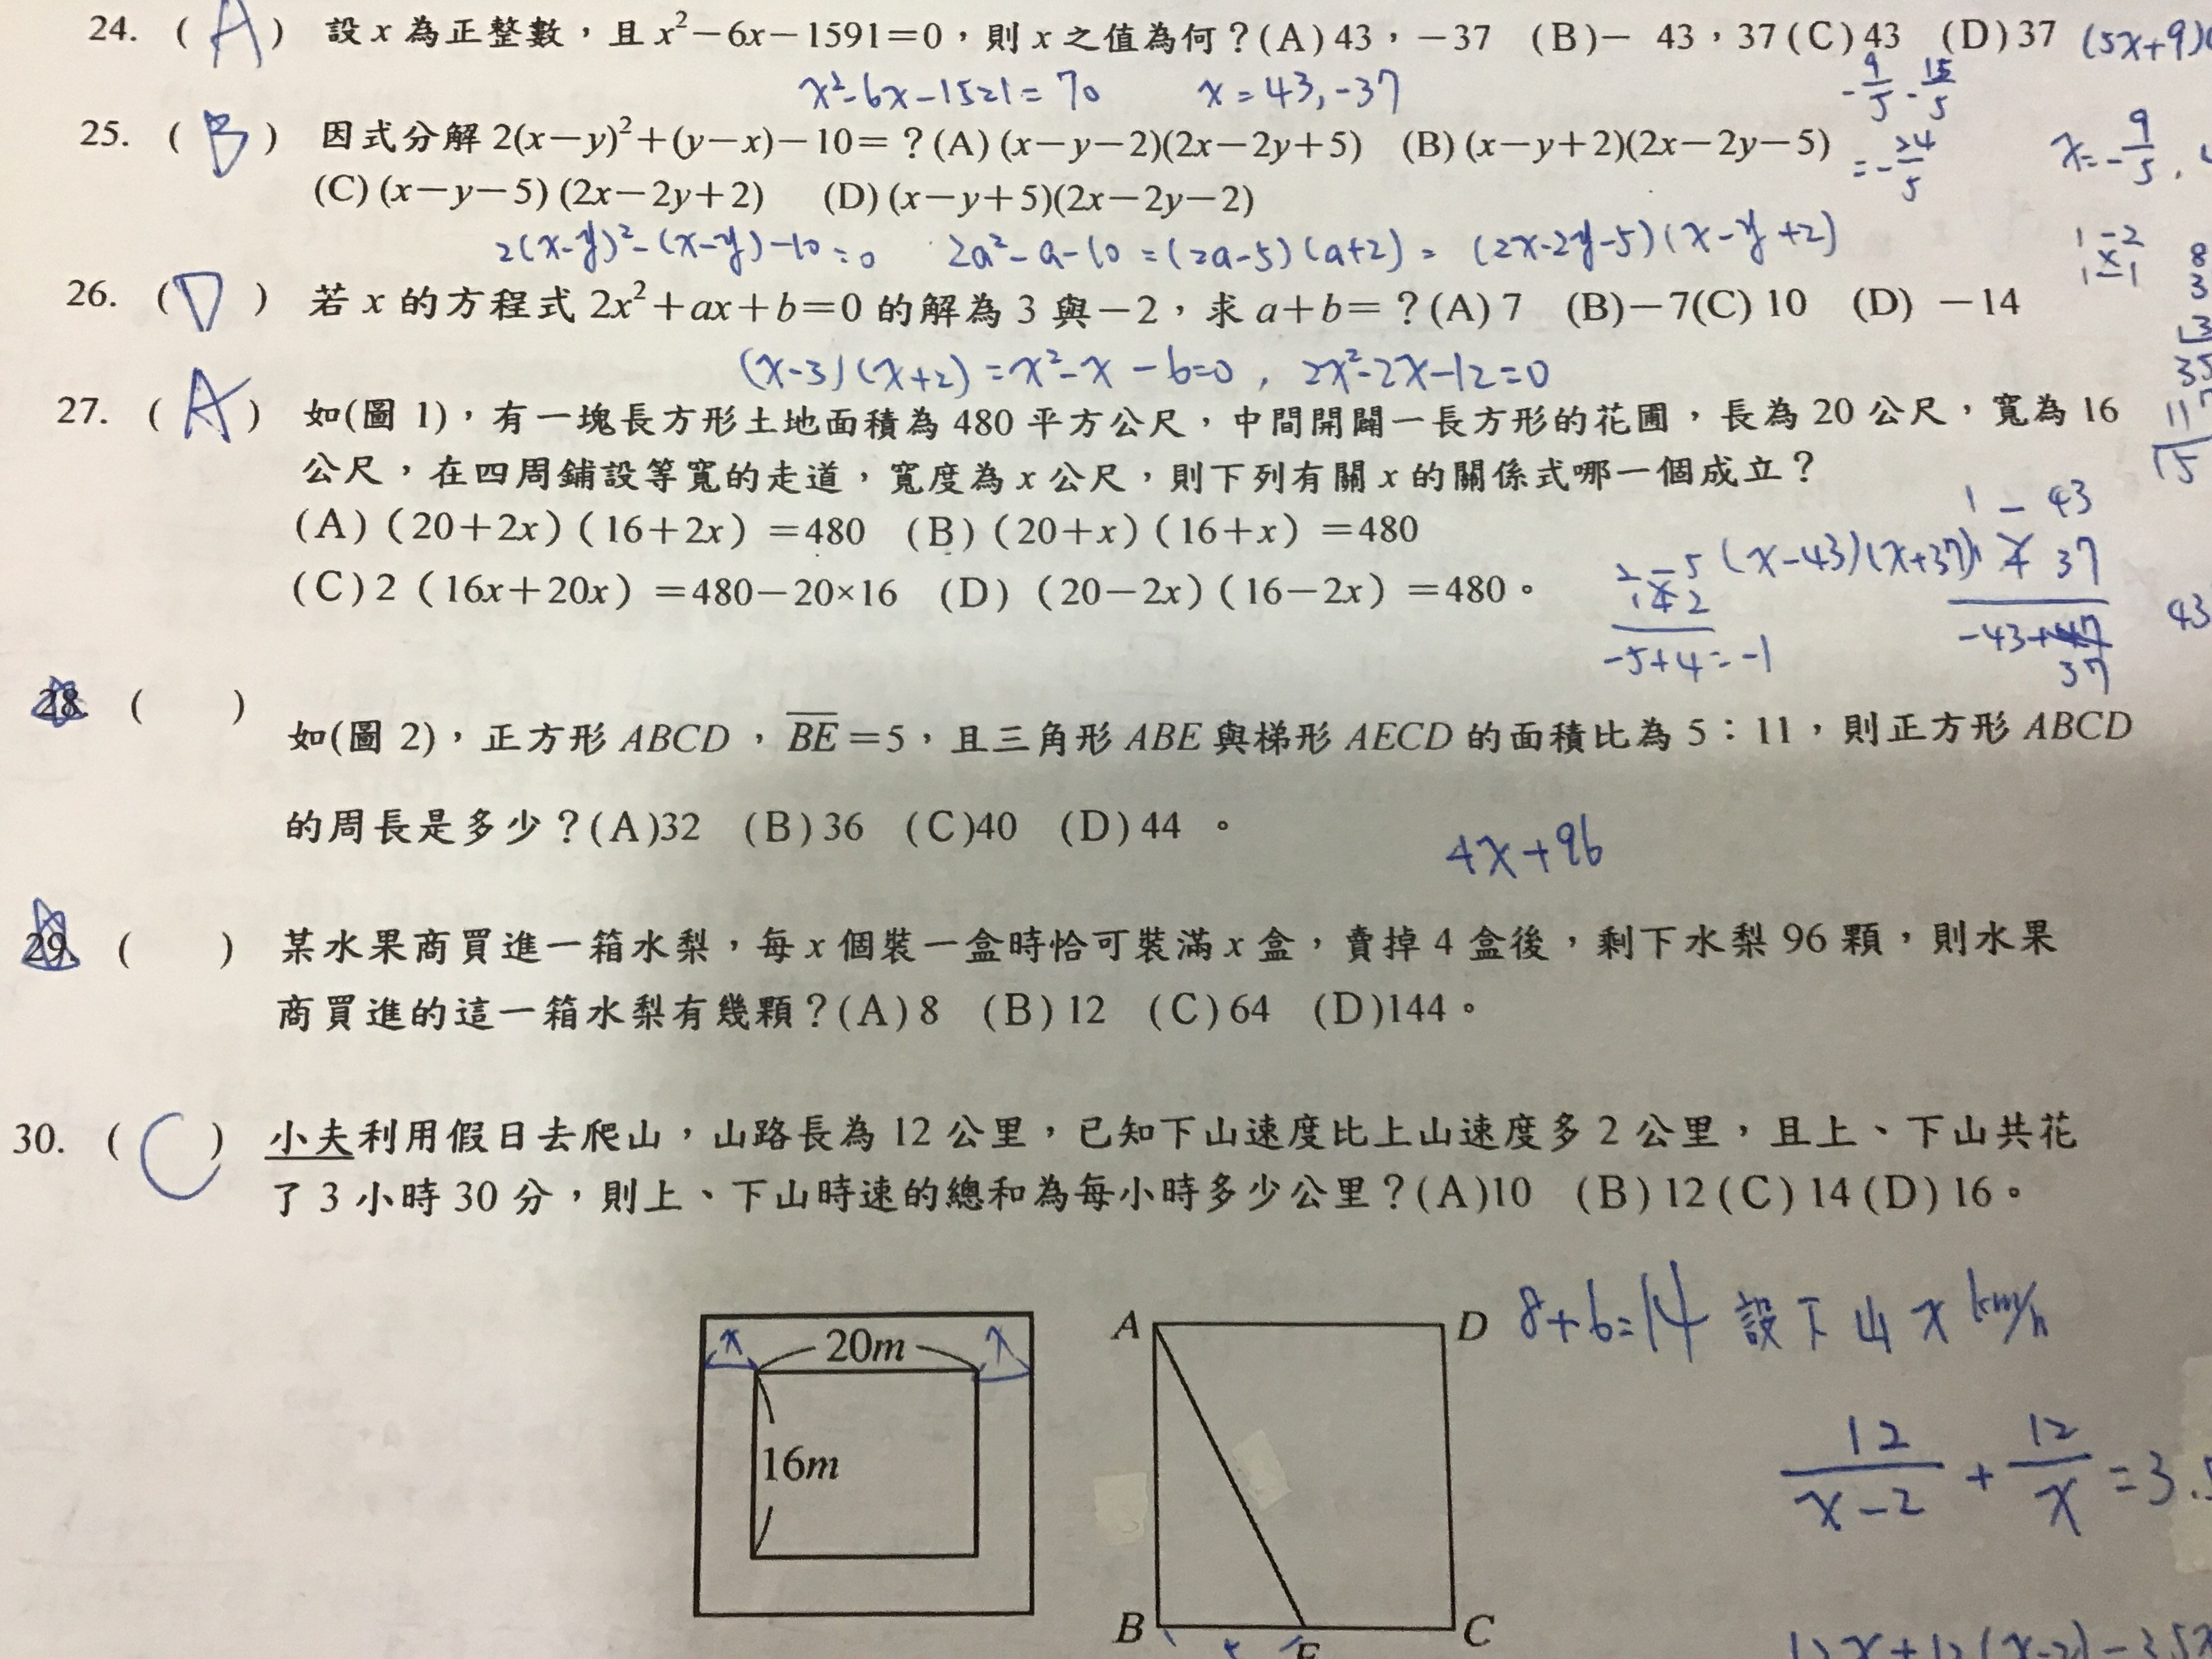 24. ( A ) 設 x 為正整數，且 x²－6x－1591＝0，則 x 之值為何？(A) 43，－37 (B)－ 43，37 (C) 43 (D) 37 (5x+9)(
x²-6x-1521=70 x=43,-37
-9/5 - 15/5
25. ( B ) 因式分解 2(x－y)²＋(y－x)－10＝？(A) (x－y－2)(2x－2y＋5) (B) (x－y＋2)(2x－2y－5)
=-24/5
x=-9/5,
(C) (x－y－5) (2x－2y＋2) (D) (x－y＋5)(2x－2y－2)
2(x-y)²-(x-y)-10=0 2a²-a-10=(2a-5)(a+2)= (2x-2y-5)(x-y+2)
1 -2
1 -1
8
3
26. ( D ) 若 x 的方程式 2x²＋ax＋b＝0 的解為 3 與－2，求 a＋b＝？(A) 7 (B)－7(C) 10 (D) －14
13
35
(x-3)(x+2)=x²-x-6=0, 2x²-2x-12=0
27. ( A ) 如(圖 1)，有一塊長方形土地面積為 480 平方公尺，中間開闢一長方形的花圃，長為 20 公尺，寬為 16
11
15
公尺，在四周鋪設等寬的走道，寬度為 x 公尺，則下列有關 x 的關係式哪一個成立？
(A)（20＋2x）（16＋2x）＝480 (B)（20＋x）（16＋x）＝480
1 - 43
(x-43)(x+37) 1 37
(C) 2（16x＋20x）＝480－20×16 (D)（20－2x）（16－2x）＝480。
2 -5
1 2
-5+4=-1
-43+
37
43
28. ( )
如(圖 2)，正方形 ABCD，BE＝5，且三角形 ABE 與梯形 AECD 的面積比為 5：11，則正方形 ABCD
的周長是多少？(A)32 (B) 36 (C)40 (D) 44 。
4x+96
29. ( ) 某水果商買進一箱水梨，每 x 個裝一盒時恰可裝滿 x 盒，賣掉 4 盒後，剩下水梨 96 顆，則水果
商買進的這一箱水梨有幾顆？(A) 8 (B) 12 (C) 64 (D)144。
30. ( C ) 小夫利用假日去爬山，山路長為 12 公里，已知下山速度比上山速度多 2 公里，且上、下山共花
了 3 小時 30 分，則上、下山時速的總和為每小時多少公里？(A)10 (B) 12 (C) 14 (D) 16。
x 20m x
16m
A D
B E C
8+6=14 設下山 x km/h
12/(x-2) + 12/x = 3.5
12x+12(x-2)=3.5x